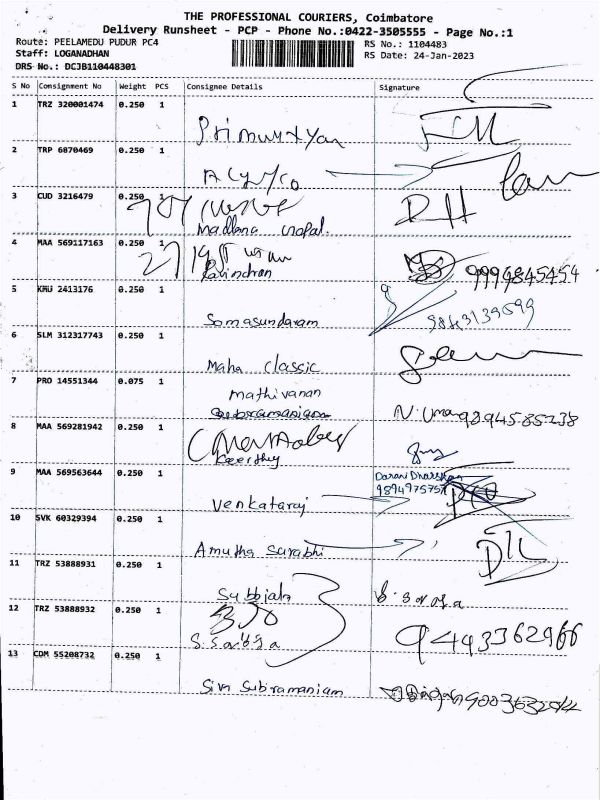 THE PROFESSIONAL COURIERS, Coimbatore
Delivery Runsheet - PCP - Phone No.:0422-3505555 - Page No.:1
Route: PEELAMEDU PUDUR PC4
RS No.: 1104483
Staff: LOGANADHAN
RS Date: 24-Jan-2023
DRS No.: DCJB110448301
S No Consignment No Weight PCS Consignee Details Signature
1 TRZ 320001474 0.250 1
2 TRP 6870469 0.250 1
3 CUD 3216479 0.250 1
Madhana Gopal.
4 MAA 569117163 0.250 1
Ravindran 9994845454
5 KMU 2413176 0.250 1
Somasundaram 9843139699
6 SLM 312317743 0.250 1
Maha Classic
7 PRO 14551344 0.075 1
Mathivanan
N. Uma 9894585238
8 MAA 569281942 0.250 1
Keerthy
9 MAA 569563644 0.250 1
9894975757
Venkataraj
10 SVK 60329394 0.250 1
Amutha Surabhi
11 TRZ 53888931 0.250 1
Subbiah
12 TRZ 53888932 0.250 1
9443362966
13 COM 55208732 0.250 1
Siva Subramaniam